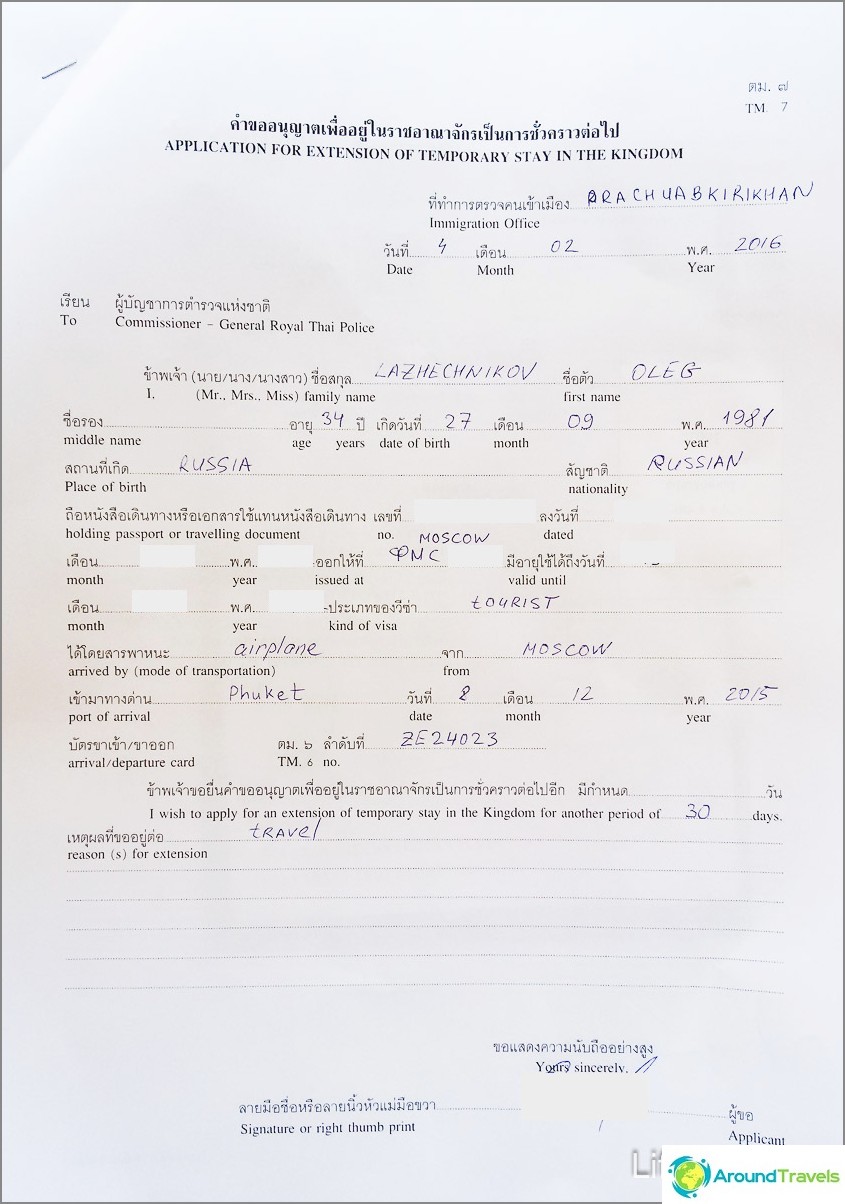 ตม. ๗
TM. 7
คำขออนุญาตเพื่ออยู่ในราชอาณาจักรเป็นการชั่วคราวต่อไป
APPLICATION FOR EXTENSION OF TEMPORARY STAY IN THE KINGDOM
ที่ทำการตรวจคนเข้าเมือง PRACHUABKIRIKHAN
Immigration Office
วันที่ 4 เดือน 02 พ.ศ. 2016
Date Month Year
เรียน ผู้บัญชาการตำรวจแห่งชาติ
To Commissioner – General Royal Thai Police
ข้าพเจ้า (นาย/นาง/นางสาว) ชื่อสกุล LAZHECHNIKOV ชื่อตัว OLEG
I. (Mr., Mrs., Miss) family name first name
ชื่อรอง อายุ 34 ปี เกิดวันที่ 27 เดือน 09 พ.ศ. 1981
middle name age years date of birth month year
สถานที่เกิด RUSSIA สัญชาติ RUSSIAN
Place of birth nationality
ถือหนังสือเดินทางหรือเอกสารใช้แทนหนังสือเดินทาง เลขที่ ลงวันที่
holding passport or travelling document no. MOSCOW dated
เดือน พ.ศ. ออกให้ที่ ФМС มีอายุใช้ได้ถึงวันที่
month year issued at valid until
เดือน พ.ศ. ประเภทของวีซ่า tOURIST
month year kind of visa
ได้โดยสารพาหนะ airplane จาก MOSCOW
arrived by (mode of transportation) from
เข้ามาทางด่าน Phuket วันที่ 8 เดือน 12 พ.ศ. 2015
port of arrival date month year
บัตรขาเข้า/ขาออก ตม. ๖ ลำดับที่ ZE24023
arrival/departure card TM. 6 no.
ข้าพเจ้าขอยื่นคำขออนุญาตเพื่ออยู่ในราชอาณาจักรเป็นการชั่วคราวต่อไปอีก มีกำหนด วัน
I wish to apply for an extension of temporary stay in the Kingdom for another period of 30 days.
เหตุผลที่ขออยู่ต่อ tRAVel
reason (s) for extension
ขอแสดงความนับถืออย่างสูง
Yours sincerely,
ลายมือชื่อหรือลายนิ้วหัวแม่มือขวา ผู้ขอ
Signature or right thumb print Applicant
AroundTravels